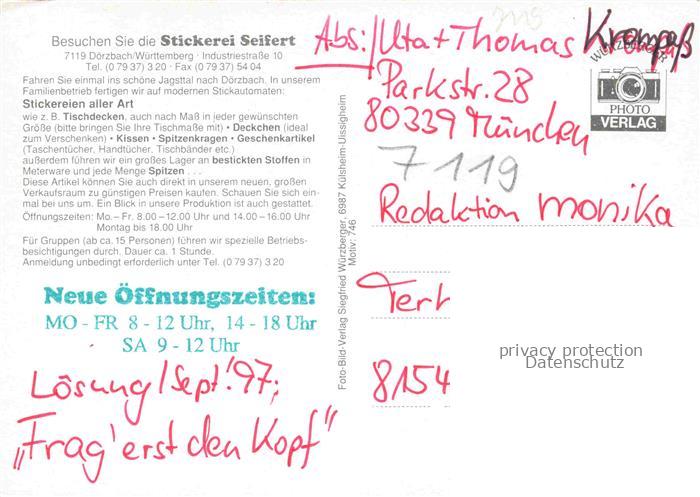 Besuchen Sie die Stickerei Seifert
7119 Dörzbach/Württemberg · Industriestraße 10
Tel. (0 79 37) 3 20 · Fax (0 79 37) 54 04
Fahren Sie einmal ins schöne Jagsttal nach Dörzbach. In unserem
Familienbetrieb fertigen wir auf modernen Stickautomaten:
Stickereien aller Art
wie z. B. Tischdecken, auch nach Maß in jeder gewünschten
Größe (bitte bringen Sie Ihre Tischmaße mit) • Deckchen (ideal
zum Verschenken) • Kissen • Spitzenkragen • Geschenkartikel
(Taschentücher, Handtücher, Tischbänder etc.)
außerdem führen wir ein großes Lager an bestickten Stoffen in
Meterware und jede Menge Spitzen . . .
Diese Artikel können Sie auch direkt in unserem neuen, großen
Verkaufsraum zu günstigen Preisen kaufen. Schauen Sie sich ein-
mal bei uns um. Ein Blick in unsere Produktion ist auch gestattet.
Öffnungszeiten: Mo.– Fr. 8.00 –12.00 Uhr und 14.00 –16.00 Uhr
Montag bis 18.00 Uhr
Für Gruppen (ab ca. 15 Personen) führen wir spezielle Betriebs-
besichtigungen durch. Dauer ca. 1 Stunde.
Anmeldung unbedingt erforderlich unter Tel. (0 79 37) 3 20
Neue Öffnungszeiten:
MO - FR 8 - 12 Uhr, 14 - 18 Uhr
SA 9 - 12 Uhr
Lösung/Sept.'97:
„Frag' erst den Kopf"
Foto-Bild-Verlag Siegfried Würzberger, 6987 Külsheim-Uissigheim
Motiv: 746
Abs:/Uta + Thomas Krompaß
Parkstr. 28
80339 München
PHOTO
VERLAG
7119
Redaktion monika
8154
privacy protection
Datenschutz